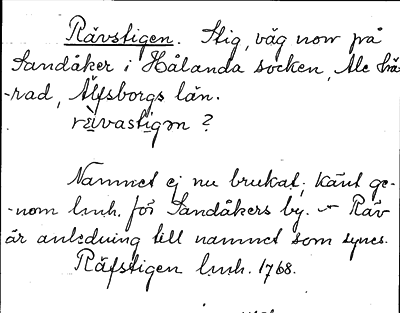 Rävstigen. Stig, väg now på
Sandåker i Hålanda socken, Ale hä-
-rad, Älfsborgs län.
rävastigən ?
Namnet ej nu brukat; känt ge-
-nom lmh. för Sandåkers by. - Räv
är anledning till namnet som synes.
Räfstigen lmh. 1768.